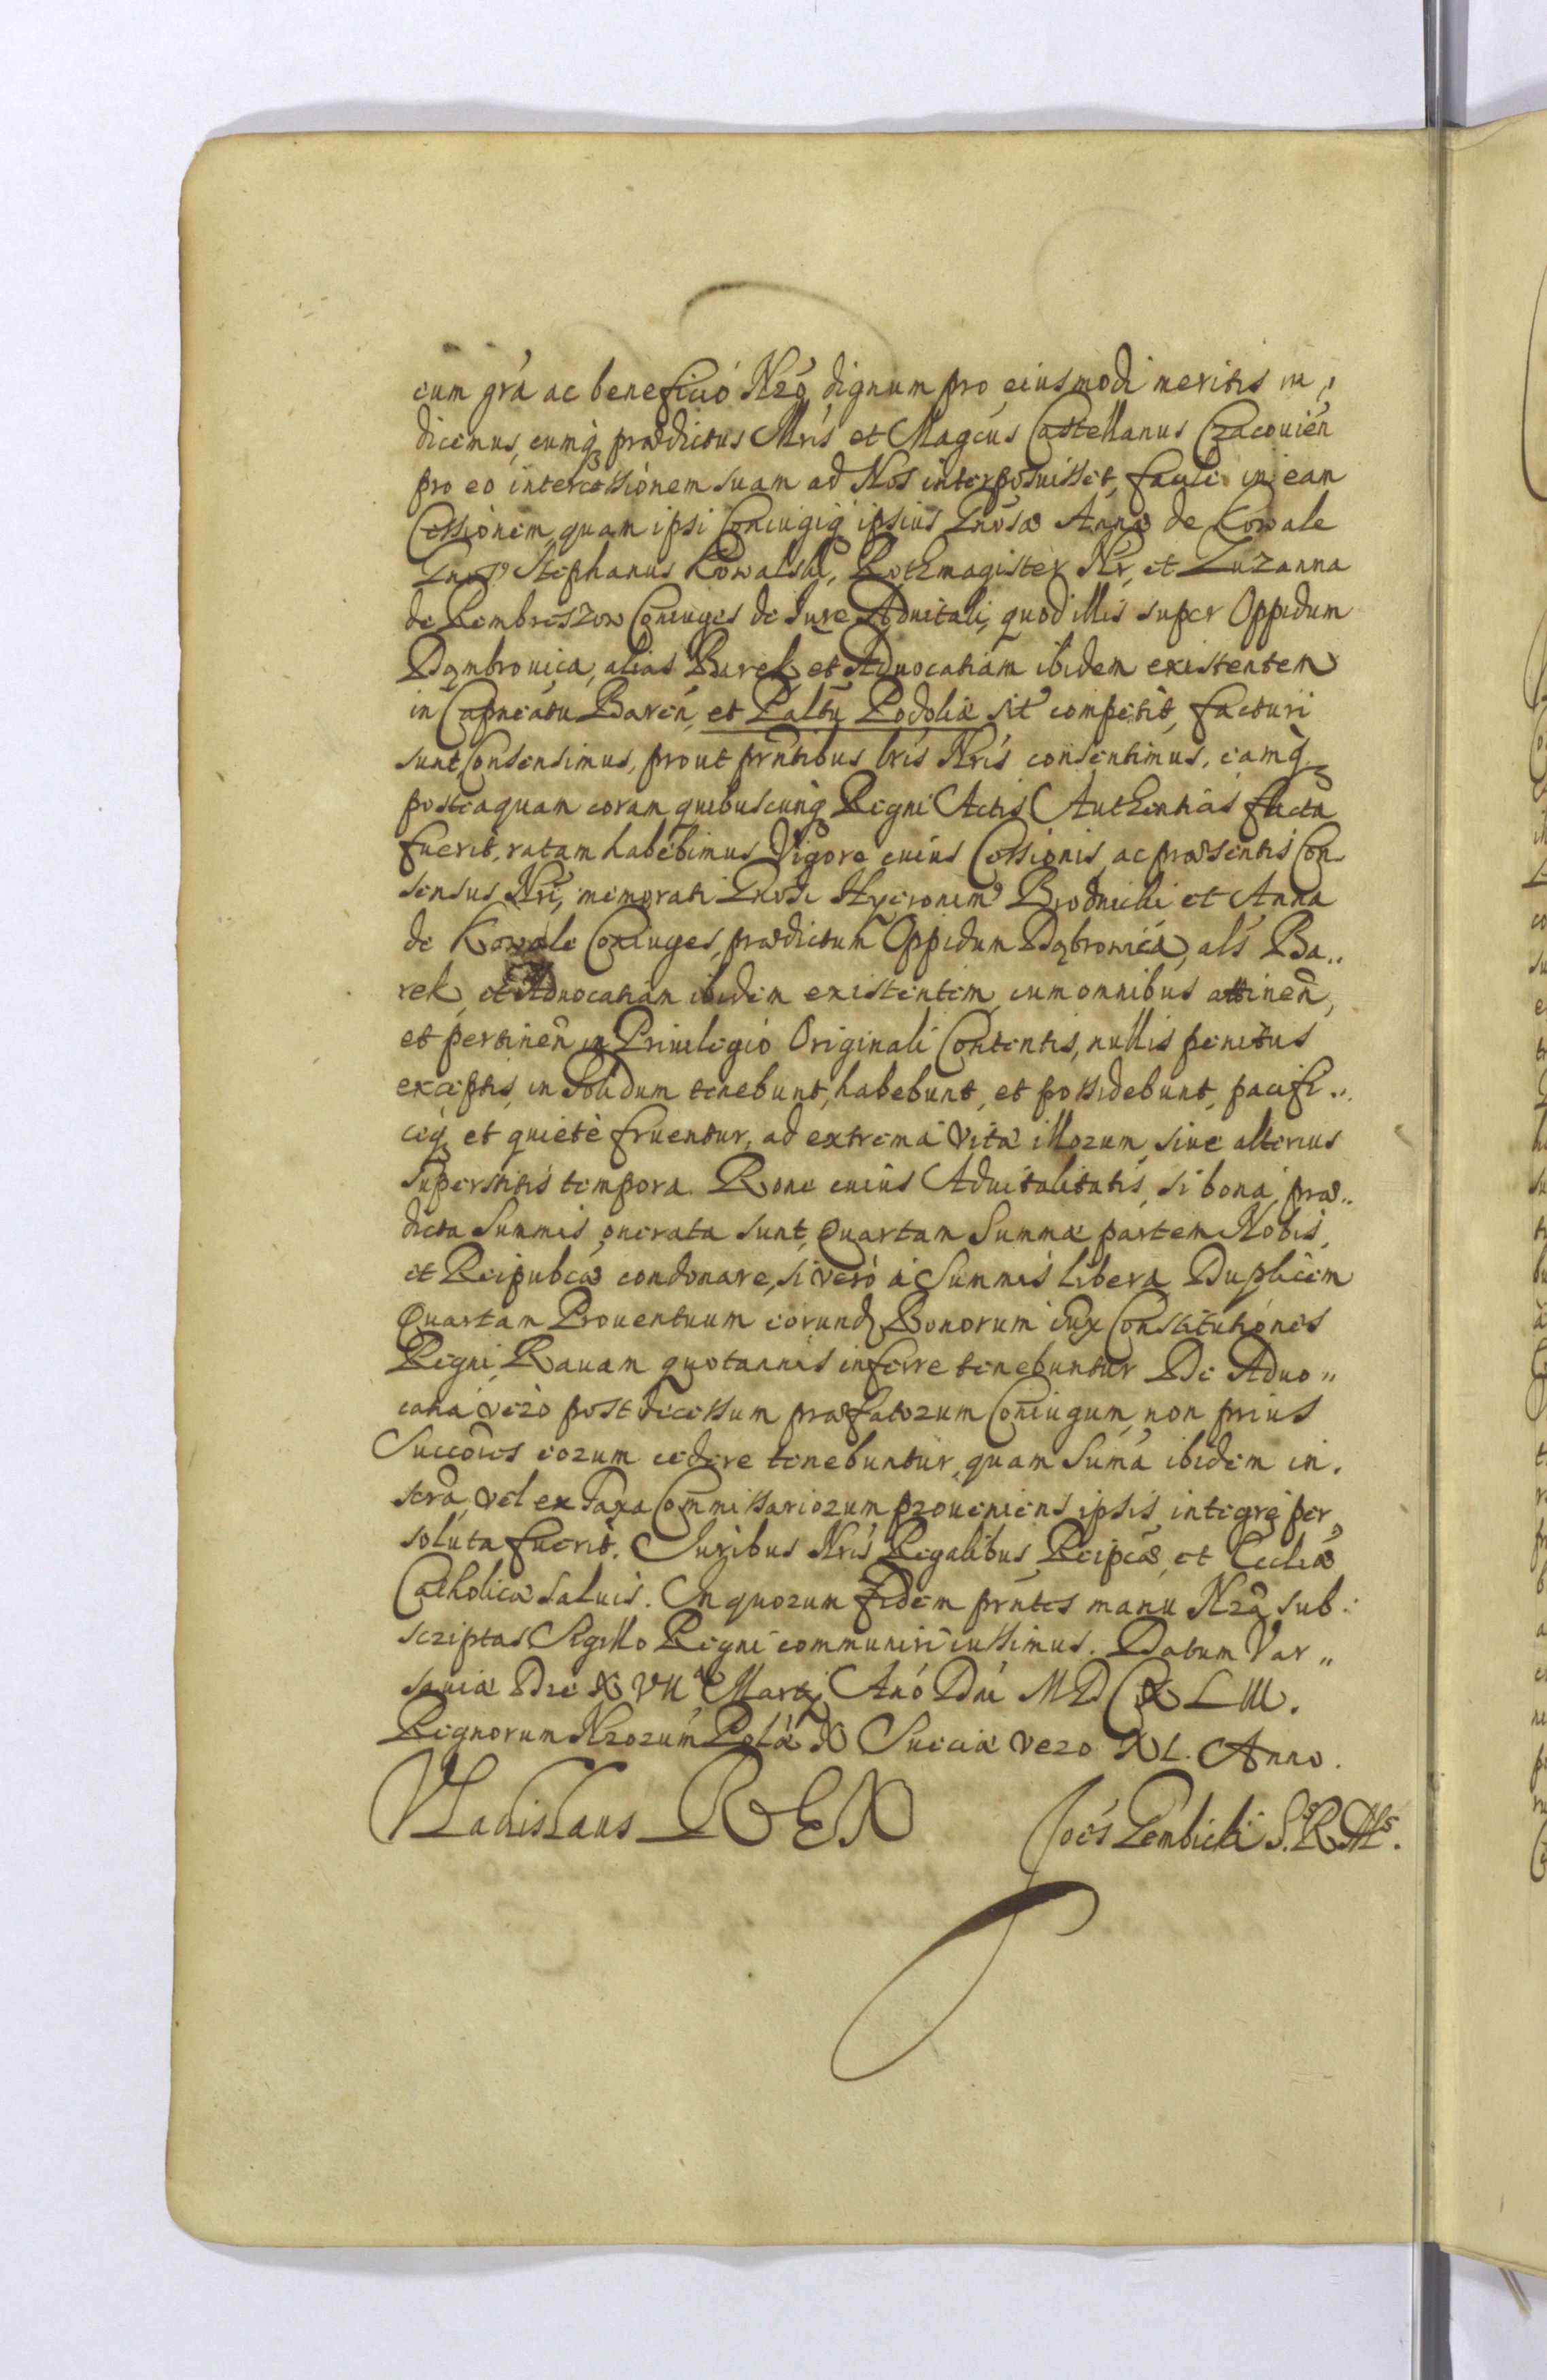 cum grã ac benefició Nró dignum pro eiusmodi meritis iu,,
dicemus, cumq3 prædictus Illris et Magcus Castellanus Cracouień
pro eo intercessionem suam ad Nos interposuisset, facile in eam
Cessionem, quam ipsi Coniugiq3 ipsius Gnosæ Annæ de Kowale
Gnos9 Stephanus Kowalski, Rothmagister Nr, et Zuzanna
de Rembreszow Coniuges de Jure Aduitali, quod illis super Oppidum
Dąmbrouica, alias Barek, et Aduocatiam ibidem existentem
in Capneatu Bareń, et Paltu Podoliæ sit' competit, facturi
sunt Consensimus, prout prntibus lris Nris consentimus, eamq3
posteaquam coram quibuscunq3 Regni Actis Authenticis facta
fuerit, ratam habebimus Vigore cuius Cessionis, ac præsentis Con
sensus Nri, memorati Gnosi Hyeronim9 Brodnicki et Anna
de Kowale Coniuges, prædictum Oppidum Dąbrowica, als Ba,,
rek, et Aduocatiam ibidem existentem, cum omnibus attineñ,
et pertineñ in Priuilegió Originali Contentis, nullis penitus
exceptis, in solidum tenebunt, habebunt, et possidebunt, pacifi,,
ceq3 et quietè fruentur, ad extrema vitæ illorum, siue alterius
superstitis tempora. Rone cuius Aduitalitatis, si bona præ,,
dicta summis onerata sunt, Quartam Summæ partem Nobis,
et Reipubcæ condonare, si verò à Summis libera Duplicem
Quartam Prouentuum eorund Bonorum iux Constitutiones
Regni, Rauam quotannis inferre tenebuntur De Aduo,,
catiá verò post decessum præfatorum Coniugum, non prius
Succōres eorum cedere tenebuntur, quam Sum̃a ibidem in,
scrã, vel ex Taxa Commissariorum proueniens ipsis integrè per,
soluta fuerit. Juribus Nris Regalibus, Reipcæ, et Eccliæ
Catholicæ saluis. In quorum fidem prñtes manu Nrã sub:
scriptas Sigillo Regni communiri iussimus. Datum Var,,
sauiæ Die XVII Martij Anó Dni MDCXLIII.
Regnorum Nrorum Polæ X Sueciæ vero XI. Anno.
Vladislaus REX
Joēs Gembicki S. R. Ms.